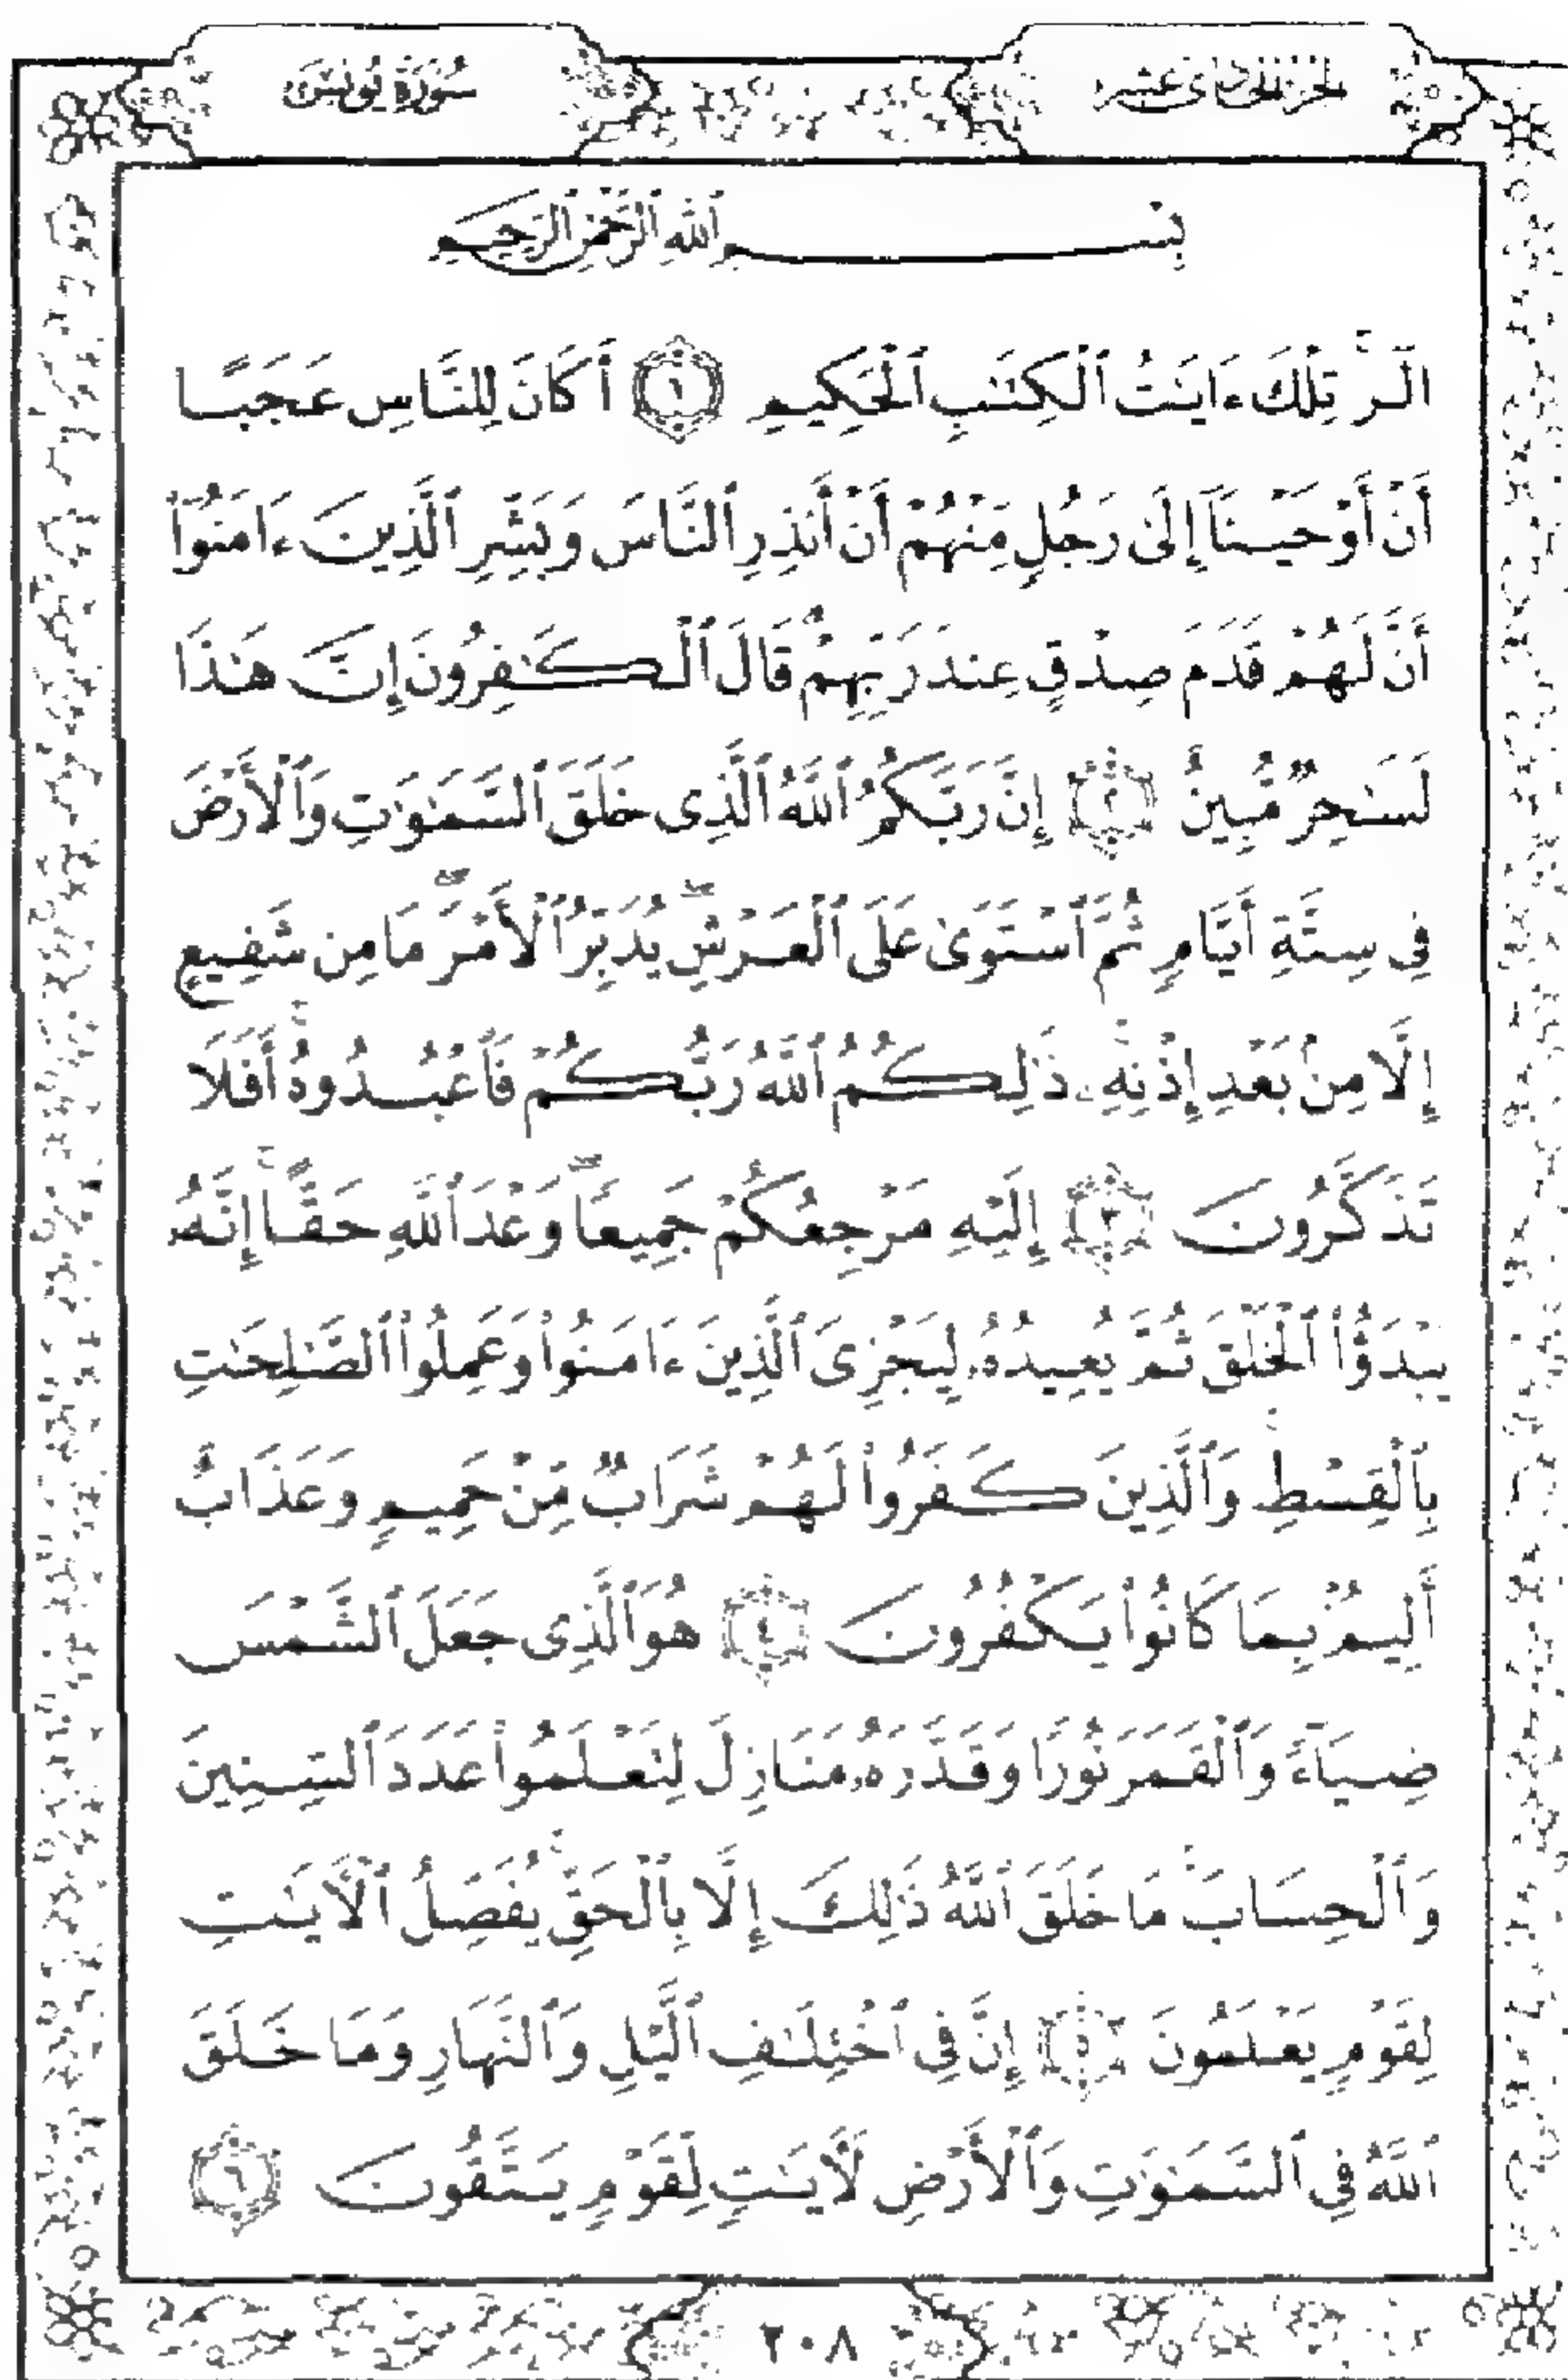 الجزء الحادى عشر
سورة يونس
بِسْمِ ٱللَّهِ ٱلرَّحْمَٰنِ ٱلرَّحِيمِ
الٓر ۚ تِلْكَ ءَايَٰتُ ٱلْكِتَٰبِ ٱلْحَكِيمِ ١ أَكَانَ لِلنَّاسِ عَجَبًا
أَنْ أَوْحَيْنَآ إِلَىٰ رَجُلٍ مِّنْهُمْ أَنْ أَنذِرِ ٱلنَّاسَ وَبَشِّرِ ٱلَّذِينَ ءَامَنُوٓا۟
أَنَّ لَهُمْ قَدَمَ صِدْقٍ عِندَ رَبِّهِمْ ۗ قَالَ ٱلْكَٰفِرُونَ إِنَّ هَٰذَا
لَسَٰحِرٌ مُّبِينٌ ٢ إِنَّ رَبَّكُمُ ٱللَّهُ ٱلَّذِى خَلَقَ ٱلسَّمَٰوَٰتِ وَٱلْأَرْضَ
فِى سِتَّةِ أَيَّامٍ ثُمَّ ٱسْتَوَىٰ عَلَى ٱلْعَرْشِ ۖ يُدَبِّرُ ٱلْأَمْرَ ۖ مَا مِن شَفِيعٍ
إِلَّا مِنۢ بَعْدِ إِذْنِهِۦ ۚ ذَٰلِكُمُ ٱللَّهُ رَبُّكُمْ فَٱعْبُدُوهُ ۚ أَفَلَا
تَذَكَّرُونَ ٣ إِلَيْهِ مَرْجِعُكُمْ جَمِيعًا ۖ وَعْدَ ٱللَّهِ حَقًّا ۚ إِنَّهُۥ
يَبْدَؤُا۟ ٱلْخَلْقَ ثُمَّ يُعِيدُهُۥ لِيَجْزِىَ ٱلَّذِينَ ءَامَنُوا۟ وَعَمِلُوا۟ ٱلصَّٰلِحَٰتِ
بِٱلْقِسْطِ ۚ وَٱلَّذِينَ كَفَرُوا۟ لَهُمْ شَرَابٌ مِّنْ حَمِيمٍ وَعَذَابٌ
أَلِيمٌۢ بِمَا كَانُوا۟ يَكْفُرُونَ ٤ هُوَ ٱلَّذِى جَعَلَ ٱلشَّمْسَ
ضِيَآءً وَٱلْقَمَرَ نُورًا وَقَدَّرَهُۥ مَنَازِلَ لِتَعْلَمُوا۟ عَدَدَ ٱلسِّنِينَ
وَٱلْحِسَابَ ۚ مَا خَلَقَ ٱللَّهُ ذَٰلِكَ إِلَّا بِٱلْحَقِّ ۚ يُفَصِّلُ ٱلْـَٔايَٰتِ
لِقَوْمٍ يَعْلَمُونَ ٥ إِنَّ فِى ٱخْتِلَٰفِ ٱلَّيْلِ وَٱلنَّهَارِ وَمَا خَلَقَ
ٱللَّهُ فِى ٱلسَّمَٰوَٰتِ وَٱلْأَرْضِ لَـَٔايَٰتٍ لِّقَوْمٍ يَتَّقُونَ ٦
٢٠٨